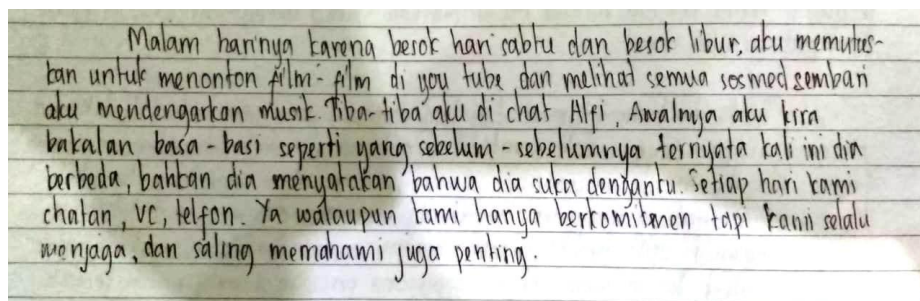 Malam harinya karena besok hari sabtu dan besok libur, aku memutus-
kan untuk menonton film-film di you tube dan melihat semua sosmed sembari
aku mendengarkan musik. Tiba-tiba aku di chat Alfi. Awalnya aku kira
bakalan basa-basi seperti yang sebelum-sebelumnya ternyata kali ini dia
berbeda, bahkan dia menyatakan bahwa dia suka denganku. Setiap hari kami
chatan, VC, telfon. Ya walaupun kami hanya berkomitmen tapi kami selalu
menjaga, dan saling memahami juga penting.